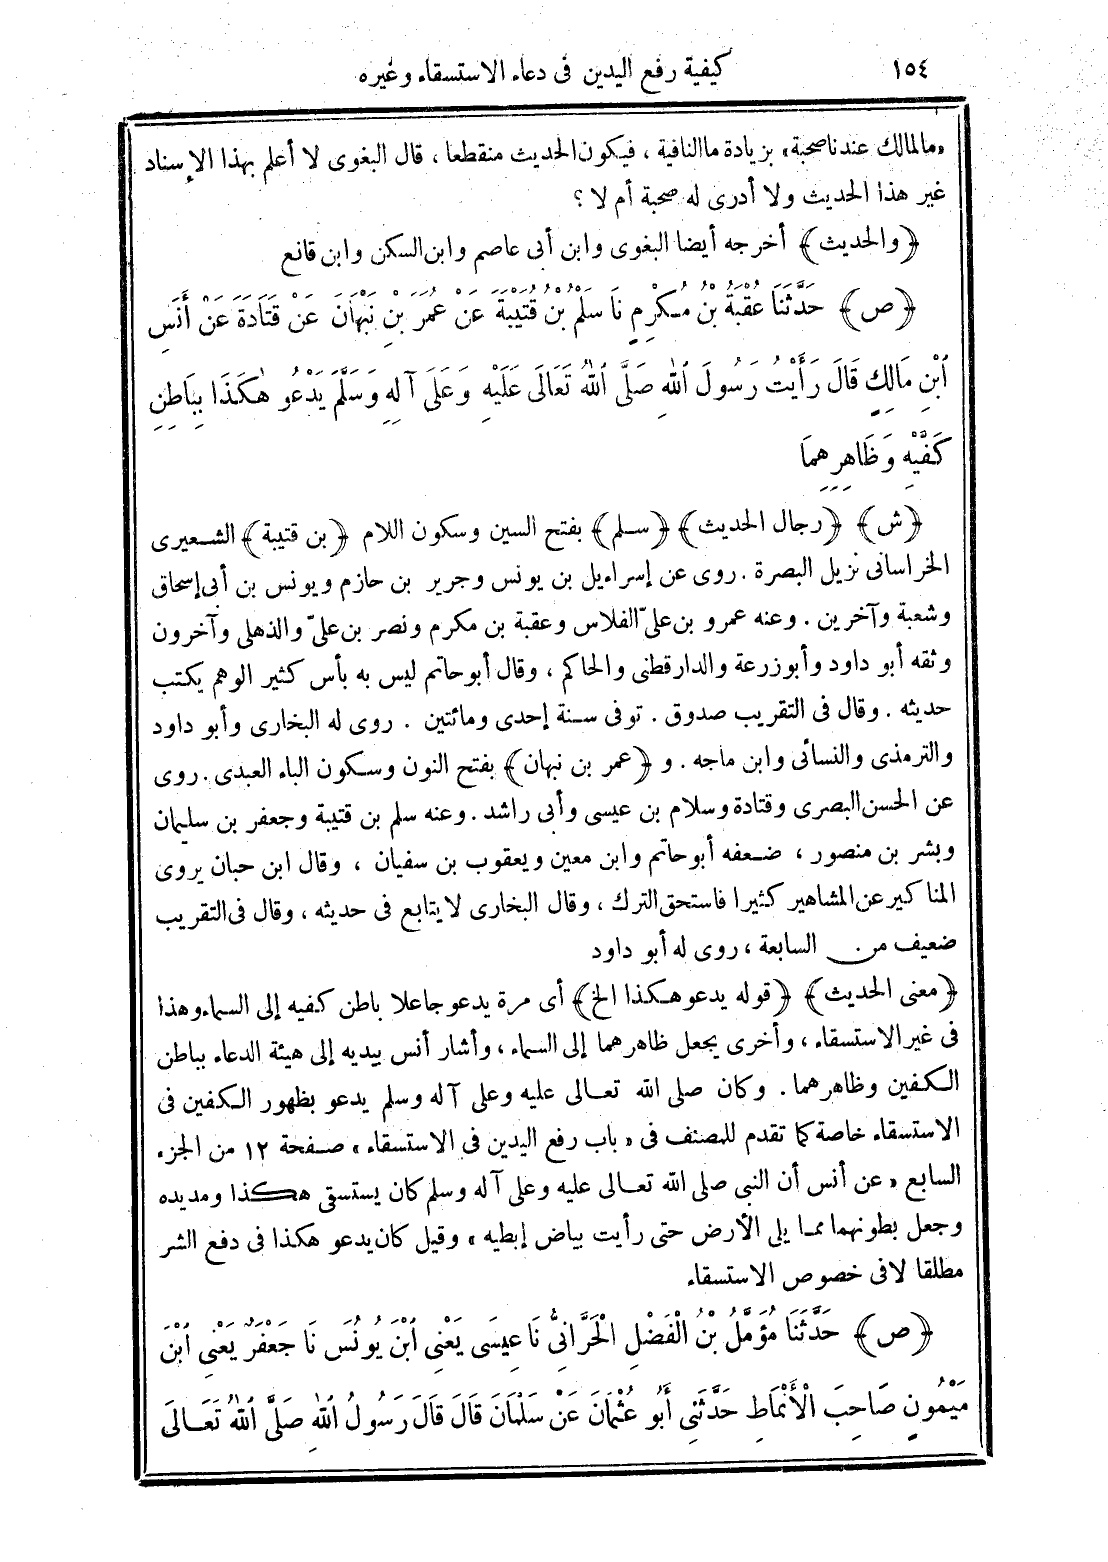 ١٥٤ كيفية رفع اليدين فى دعاء الاستسقاء وغيره
«مالمالك عندنا صحبة» بزيادة ما النافية ، فيكون الحديث منقطعا ، قال البغوى لا أعلم بهذا الإسناد
غير هذا الحديث ولا أدرى له صحبة أم لا ؟
﴿والحديث﴾ أخرجه أيضا البغوى وابن أبى عاصم وابن السكن وابن قانع
﴿ص﴾ حَدَّثَنَا عُقْبَةُ بْنُ مُكْرِمٍ نَا سَلْمُ بْنُ قُتَيْبَةَ عَنْ عُمَرَ بْنِ نَبْهَانَ عَنْ قَتَادَةَ عَنْ أَنَسِ
ٱبْنِ مَالِكٍ قَالَ رَأَيْتُ رَسُولَ ٱللهِ صَلَّى ٱللهُ تَعَالَى عَلَيْهِ وَعَلَى آلِهِ وَسَلَّمَ يَدْعُو هٰكَذَا بِبَاطِنِ
كَفَّيْهِ وَظَاهِرِهِمَا
﴿ش﴾ ﴿رجال الحديث﴾ ﴿سلم﴾ بفتح السين وسكون اللام ﴿بن قتيبة﴾ الشعيرى
الخراسانى نزيل البصرة . روى عن إسراءيل بن يونس وجرير بن حازم ويونس بن أبى إسحاق
وشعبة وآخرين . وعنه عمرو بن علىّ الفلاس وعقبة بن مكرم ونصر بن علىّ والذهلى وآخرون
وثقه أبو داود وأبو زرعة والدارقطنى والحاكم ، وقال أبو حاتم ليس به بأس كثير الوهم يكتب
حديثه . وقال فى التقريب صدوق . توفى سنة إحدى ومائتين . روى له البخارى وأبو داود
والترمذى والنسائى وابن ماجه . و ﴿عمر بن نبهان﴾ بفتح النون وسكون الباء العبدى . روى
عن الحسن البصرى وقتادة وسلام بن عيسى وأبى راشد . وعنه سلم بن قتيبة وجعفر بن سليمان
وبشر بن منصور ، ضعفه أبو حاتم وابن معين ويعقوب بن سفيان ، وقال ابن حبان يروى
المناكير عن المشاهير كثيرا فاستحق الترك ، وقال البخارى لا يتابع فى حديثه ، وقال فى التقريب
ضعيف من السابعة ، روى له أبو داود
﴿معنى الحديث﴾ ﴿قوله يدعو هكذا الخ﴾ أى مرة يدعو جاعلا باطن كفيه إلى السماء وهذا
فى غير الاستسقاء ، وأخرى يجعل ظاهرهما إلى السماء ، وأشار أنس بيديه إلى هيئة الدعاء بباطن
الكفين وظاهرهما . وكان صلى الله تعالى عليه وعلى آله وسلم يدعو بظهور الكفين فى
الاستسقاء خاصة كما تقدم للمصنف فى «باب رفع اليدين فى الاستسقاء» صفحة ١٢ من الجزء
السابع «عن أنس أن النبى صلى الله تعالى عليه وعلى آله وسلم كان يستسقى هكذا ومد يده
وجعل بطونهما مما يلى الأرض حتى رأيت بياض إبطيه» وقيل كان يدعو هكذا فى دفع الشر
مطلقا لا فى خصوص الاستسقاء
﴿ص﴾ حَدَّثَنَا مُؤَمَّلُ بْنُ الْفَضْلِ الْحَرَّانِىُّ نَا عِيسَى يَعْنِى ٱبْنَ يُونُسَ نَا جَعْفَرٌ يَعْنِى ٱبْنَ
مَيْمُونٍ صَاحِبَ الْأَنْمَاطِ حَدَّثَنِى أَبُو عُثْمَانَ عَنْ سَلْمَانَ قَالَ قَالَ رَسُولُ ٱللهِ صَلَّى ٱللهُ تَعَالَى